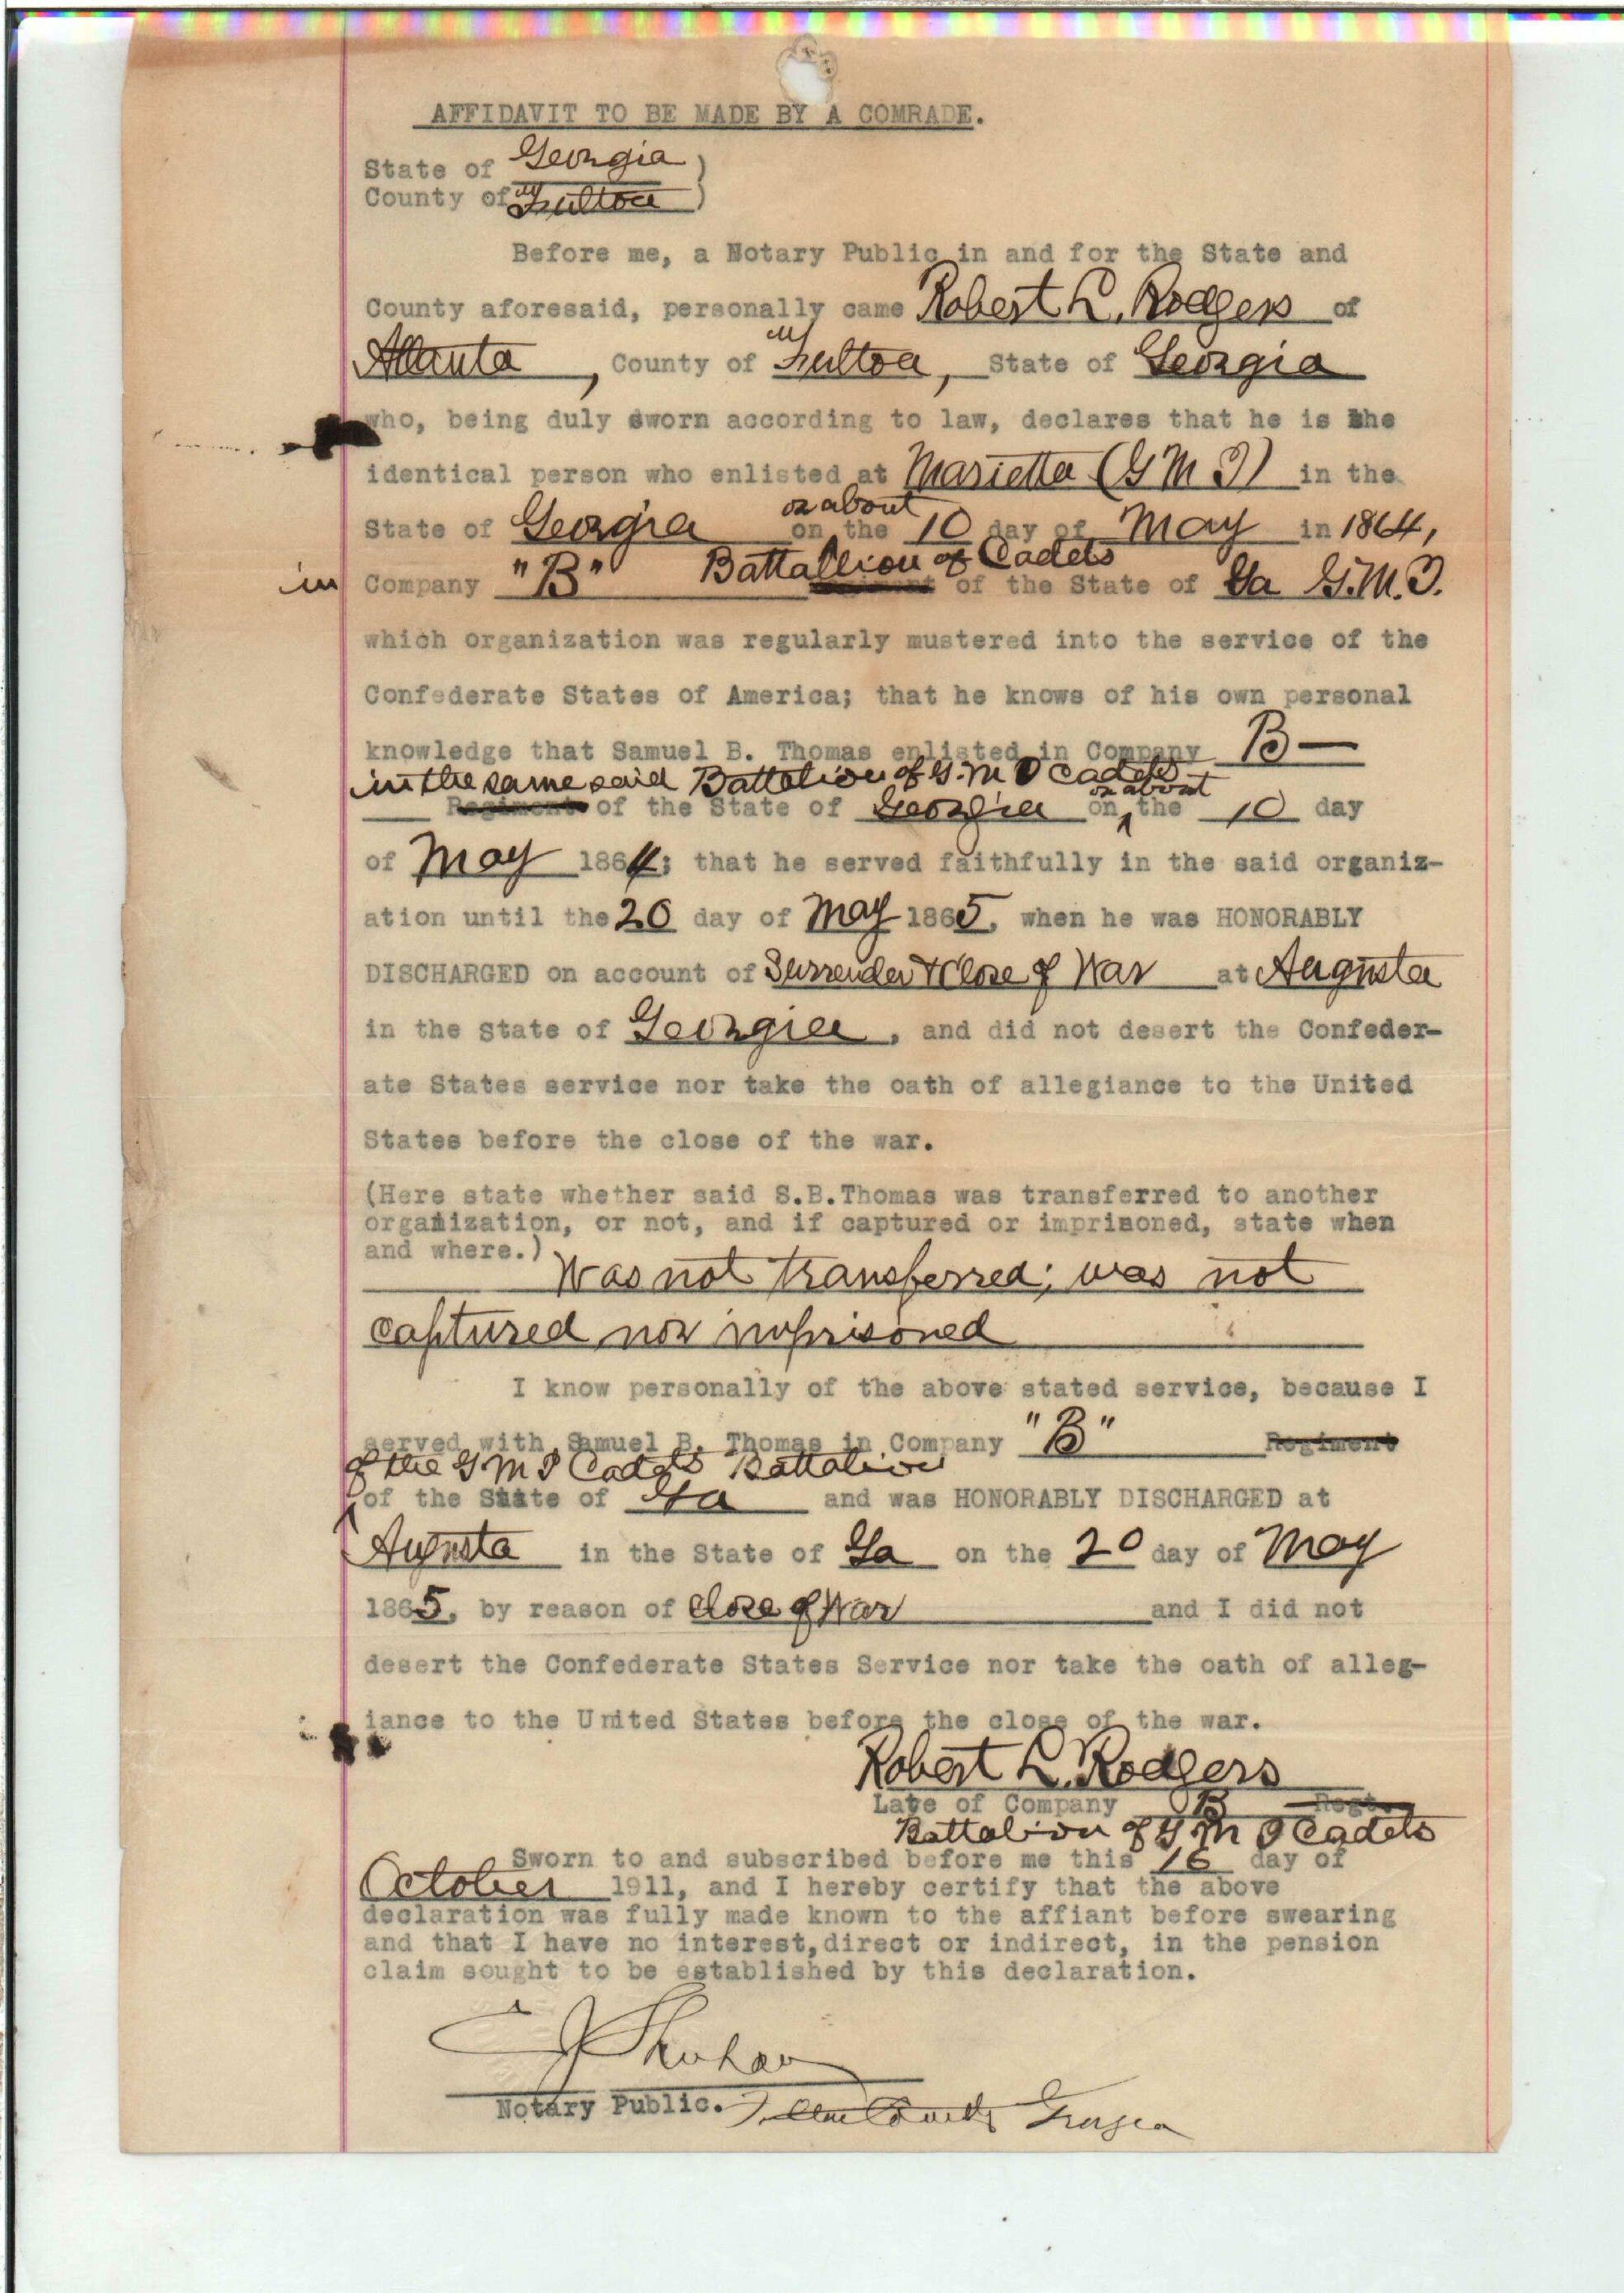 AFFIDAVIT TO BE MADE BY A COMRADE.
State of Georgia )
County of Fulton )
Before me, a Notary Public in and for the State and
County aforesaid, personally came Robert L. Rodgers of
Atlanta, County of Fulton, State of Georgia
who, being duly sworn according to law, declares that he is the
identical person who enlisted at Marietta (G M I) in the
or about
State of Georgia on the 10 day of May in 1864,
in Company "B" Battallion of Cadets of the State of Ga G.M.I.
which organization was regularly mustered into the service of the
Confederate States of America; that he knows of his own personal
knowledge that Samuel B. Thomas enlisted in Company B —
in the same said Battalion of G. M I Cadets or about
Regiment of the State of Georgia on the 10 day
of May 1864; that he served faithfully in the said organiz-
ation until the 20 day of May 1865, when he was HONORABLY
DISCHARGED on account of Surrender & Close of War at Augusta
in the State of Georgia, and did not desert the Confeder-
ate States service nor take the oath of allegiance to the United
States before the close of the war.
(Here state whether said S.B.Thomas was transferred to another
organization, or not, and if captured or imprisoned, state when
and where.)
Was not transferred; was not
captured nor imprisoned
I know personally of the above stated service, because I
served with Samuel B. Thomas in Company "B" Regiment
of the G M I Cadets Battalion
of the State of Ga and was HONORABLY DISCHARGED at
Augusta in the State of Ga on the 20 day of May
1865, by reason of Close of War and I did not
desert the Confederate States Service nor take the oath of alleg-
iance to the United States before the close of the war.
Robert L. Rodgers
Late of Company B Regt.
Battalion of G M I Cadets
Sworn to and subscribed before me this 16 day of
October 1911, and I hereby certify that the above
declaration was fully made known to the affiant before swearing
and that I have no interest,direct or indirect, in the pension
claim sought to be established by this declaration.
Notary Public. Fulton County Georgia